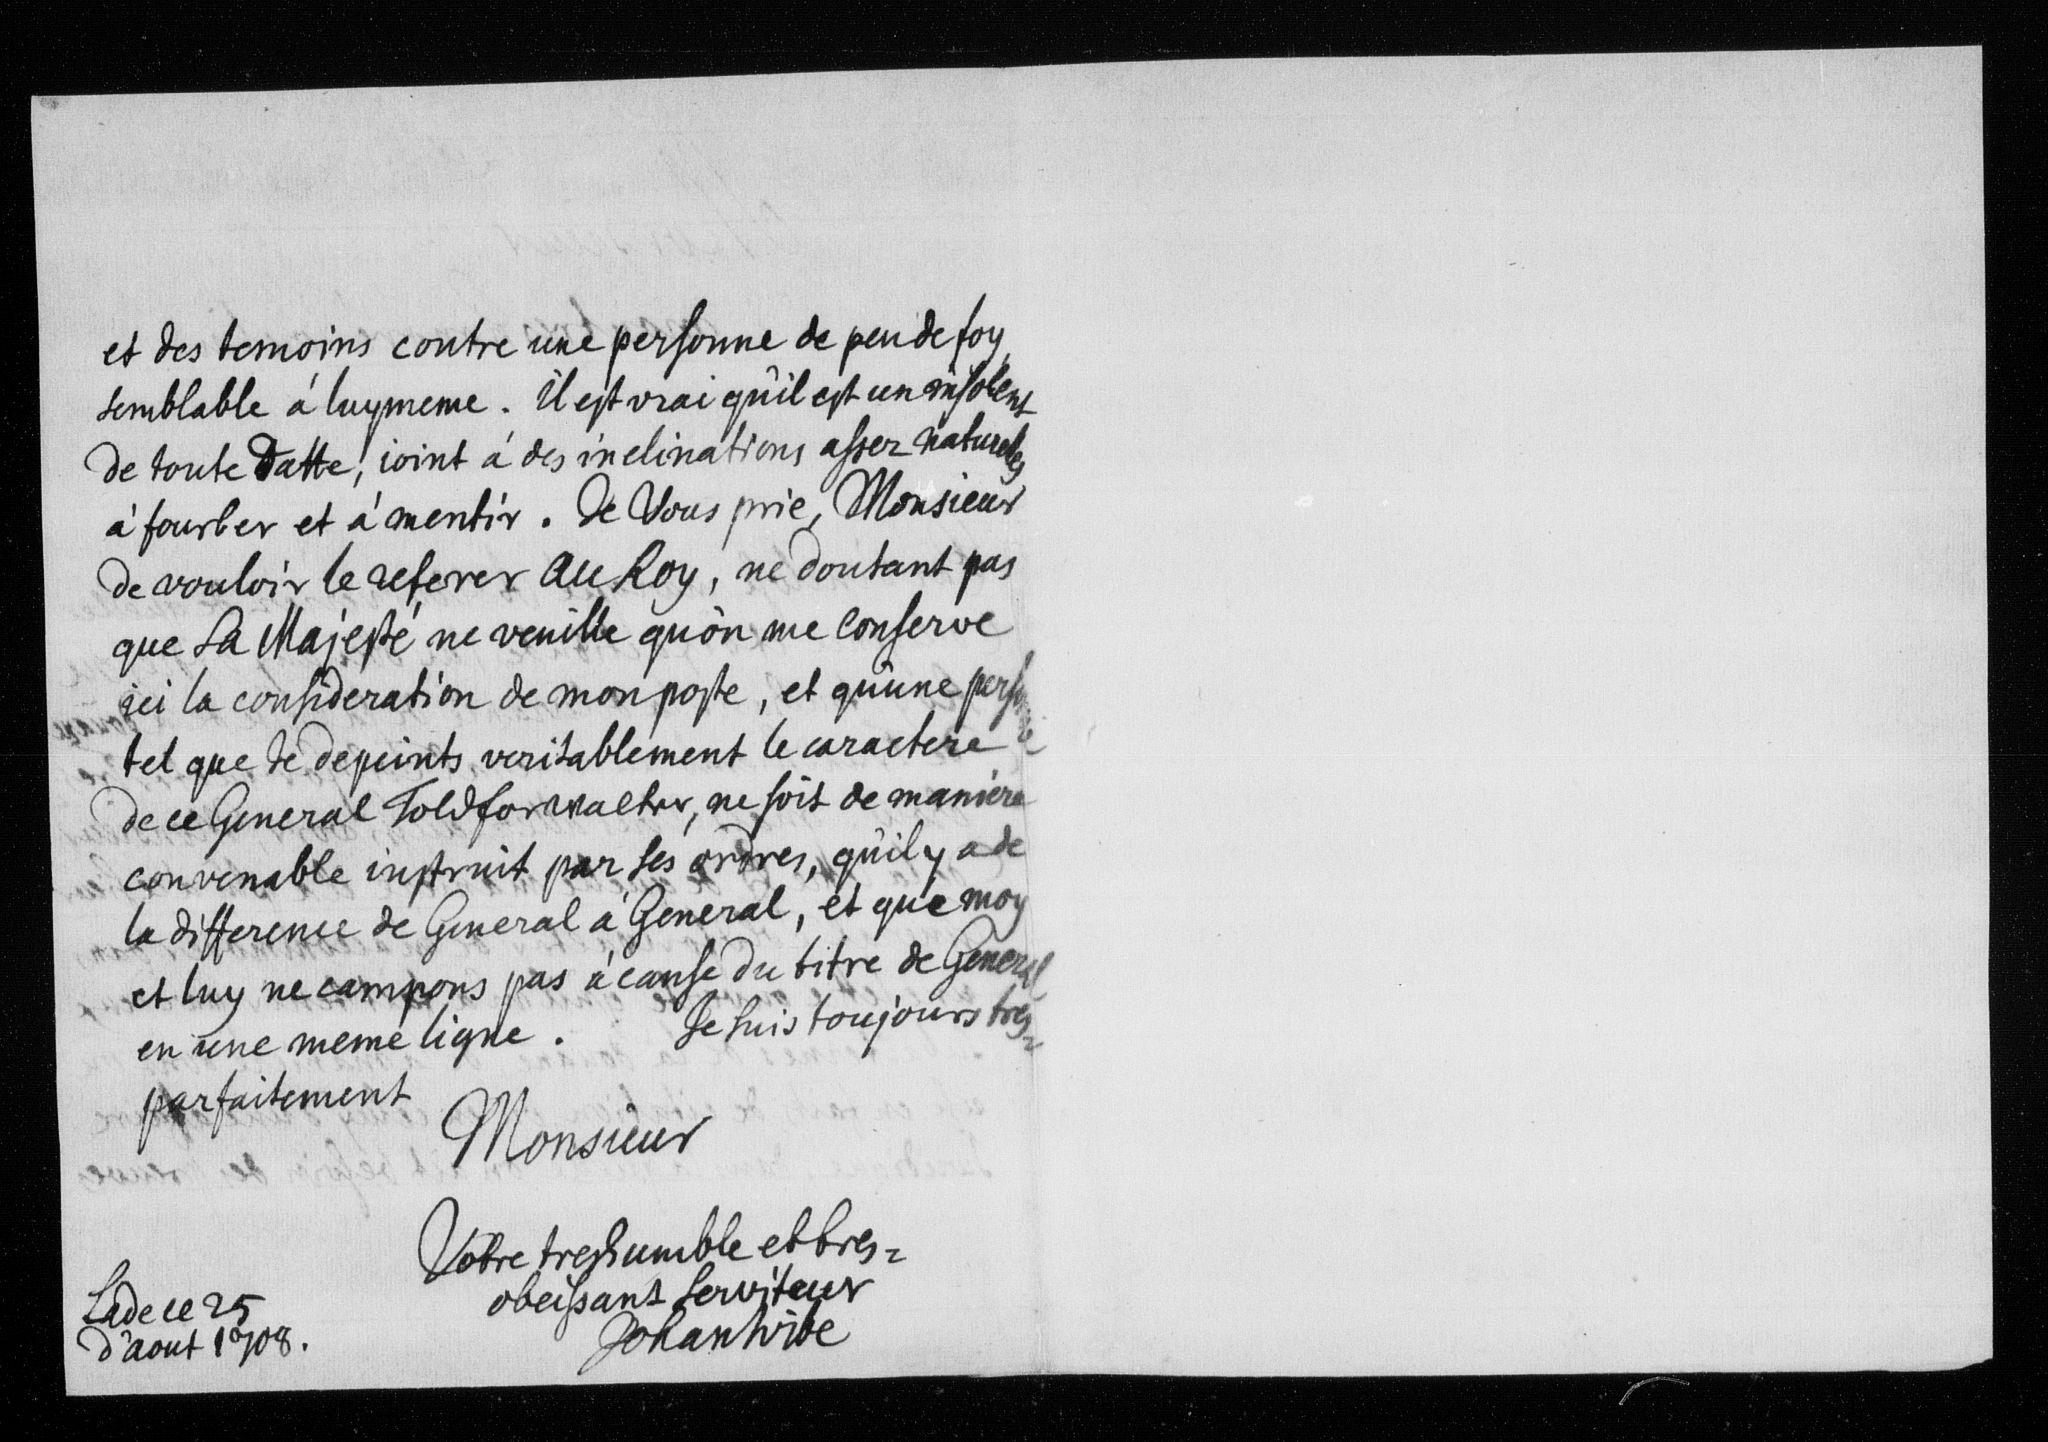 et des temoins contre une personne de peu de foy
semblable á luymeme. Il est vrai qu'il est un insolent
de toute Datte, ioint á des inclinations assez naturelles
á fourber et á mentir. Je Vous prie, Monsieur
de vouloir le referer au Roy, ne doutant pas
que sa Majesté ne veuille qu'on me conserve
ici la consideration de mon poste, et qu'une personne
tel que Je depeints veritablement le caractere
de ce General Toldforvalter, ne soit de maniere
convenable instruit par ses ordres, qu'il y a de
la difference de General á General, et que moy
et luy ne campons pas á cause du titre de General
en une meme ligne. Je suis toujours tres=
parfaitement
Monsieur
Votre treshumble et tres=
obeissant serviteur
Johan Wibe
Lade ce 25
d'aout 1708.